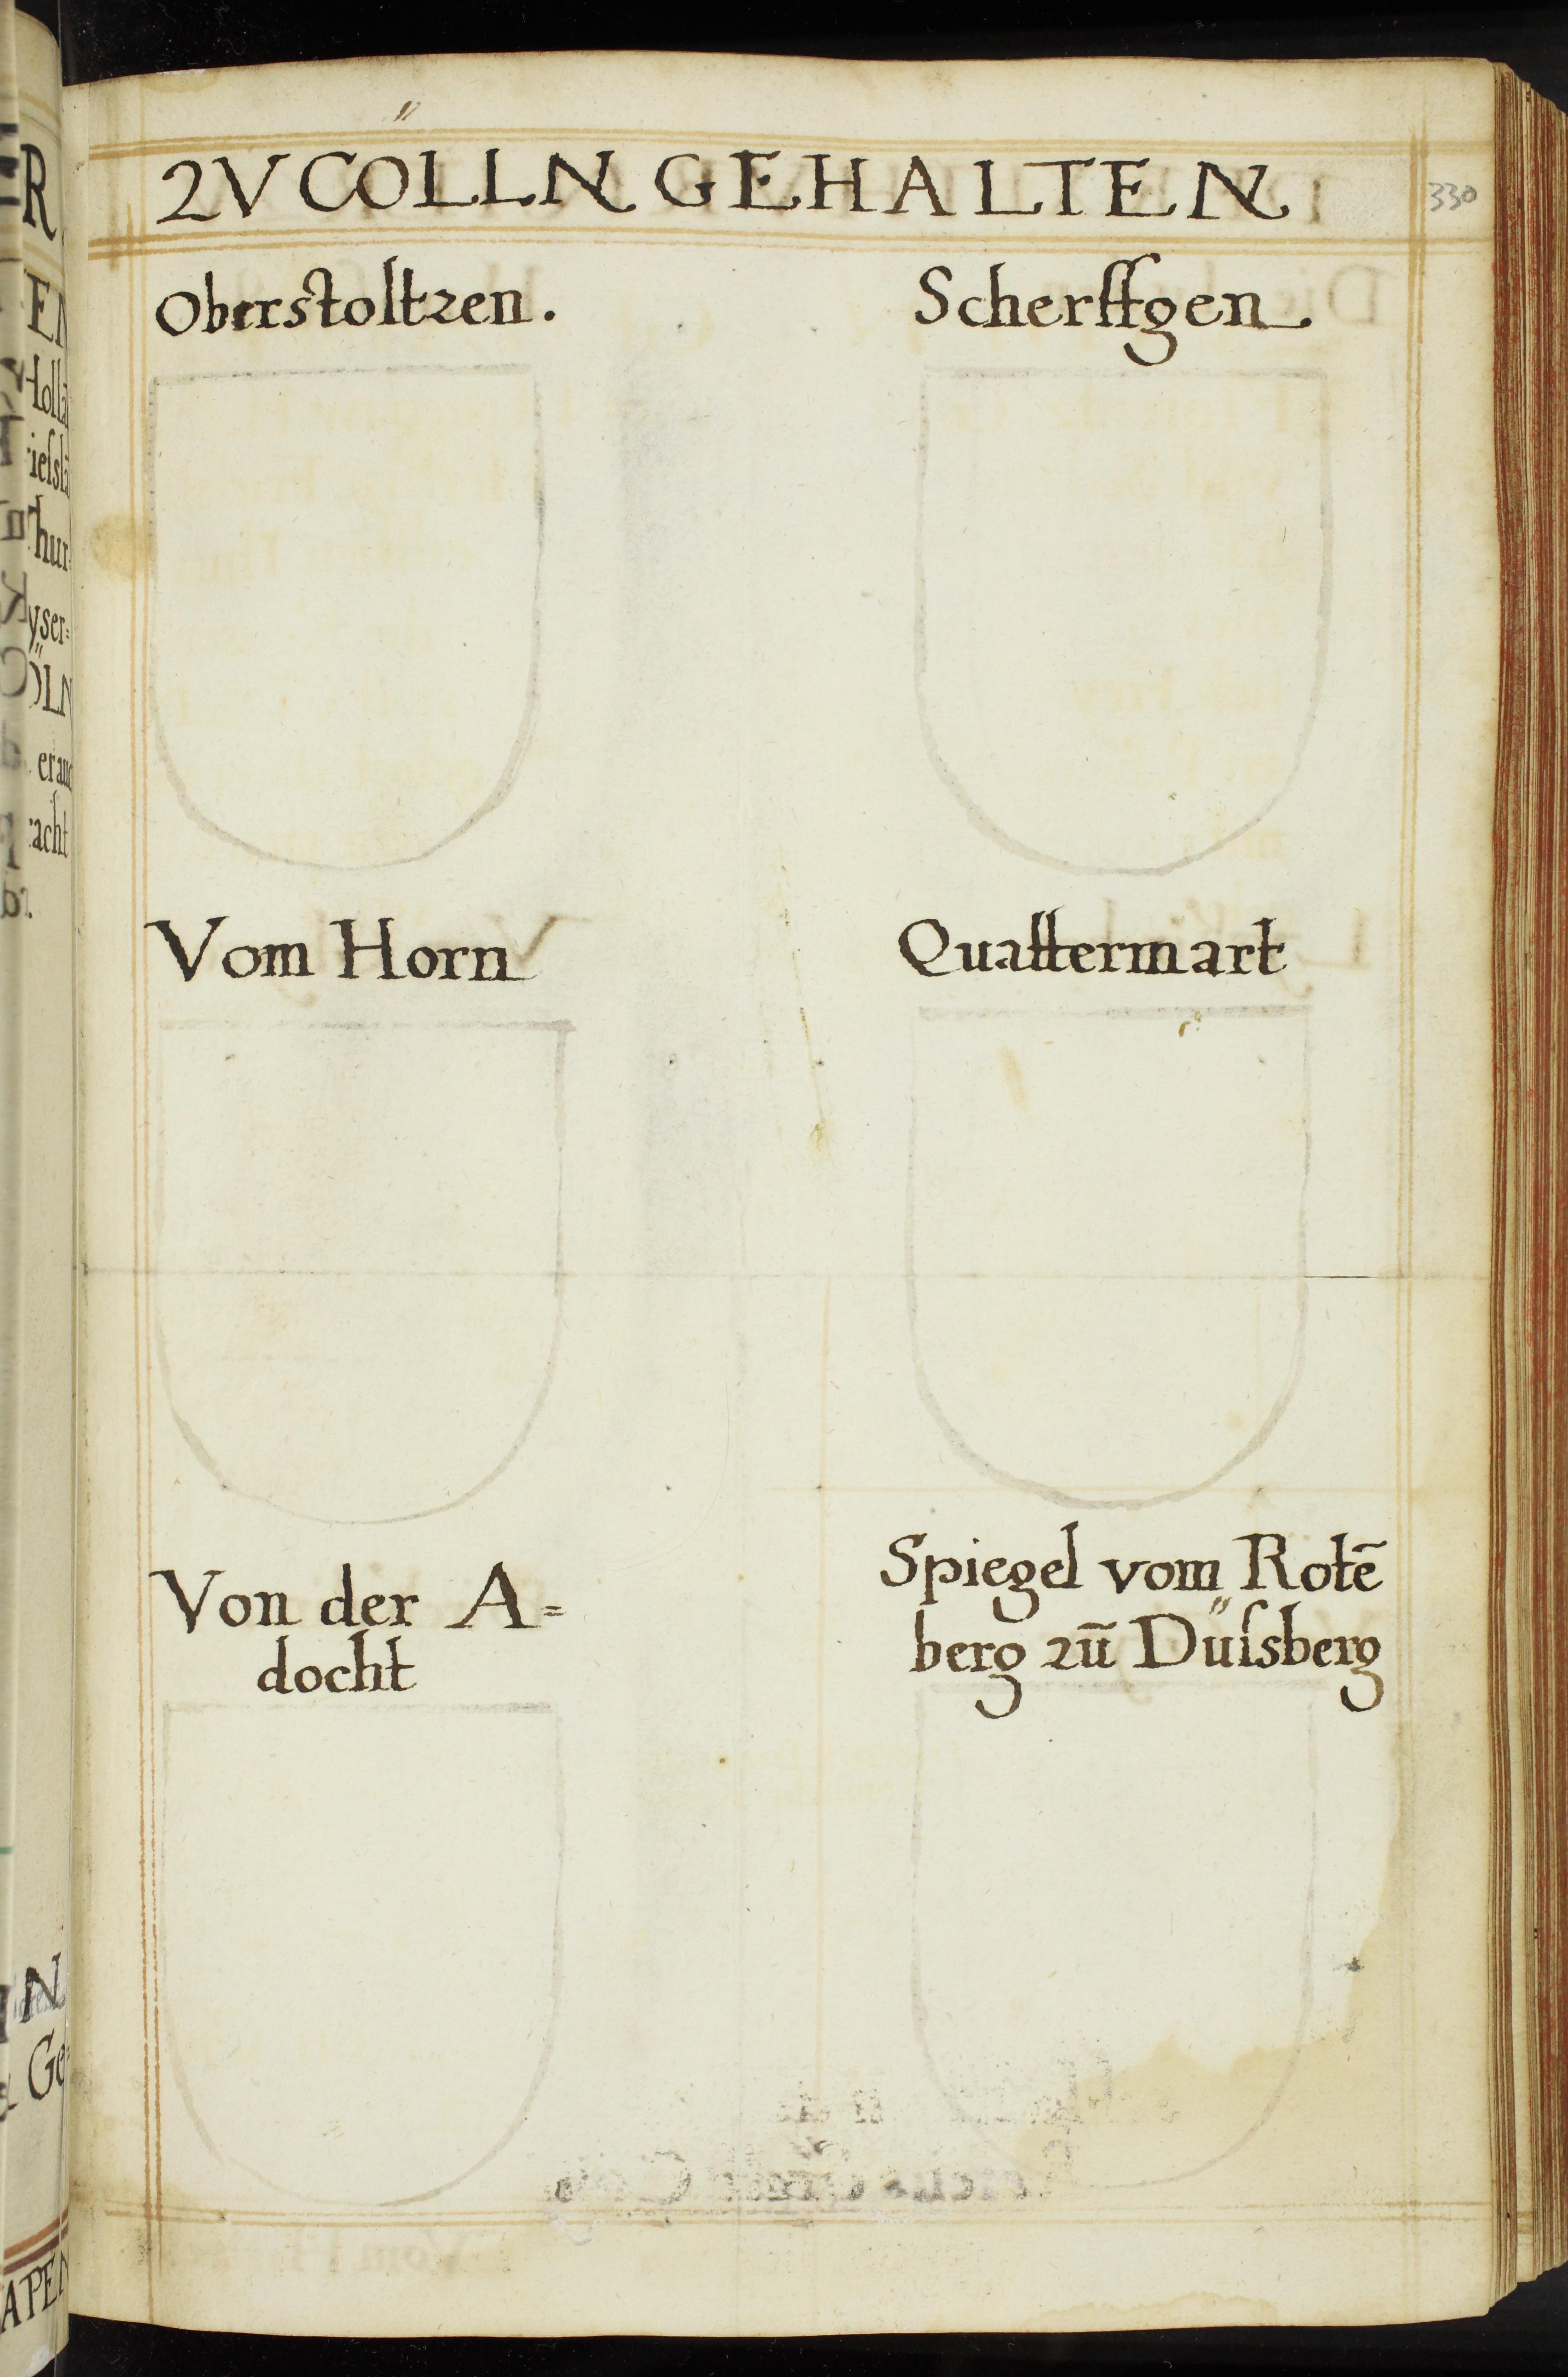 ZV CÖLLN GEHALTEN
330
Oberstoltzen.
Scherffgen.
Vom Horn
Quattermart
Von der A=
docht
Spiegel vom Rotē
berg zū Düſsberg